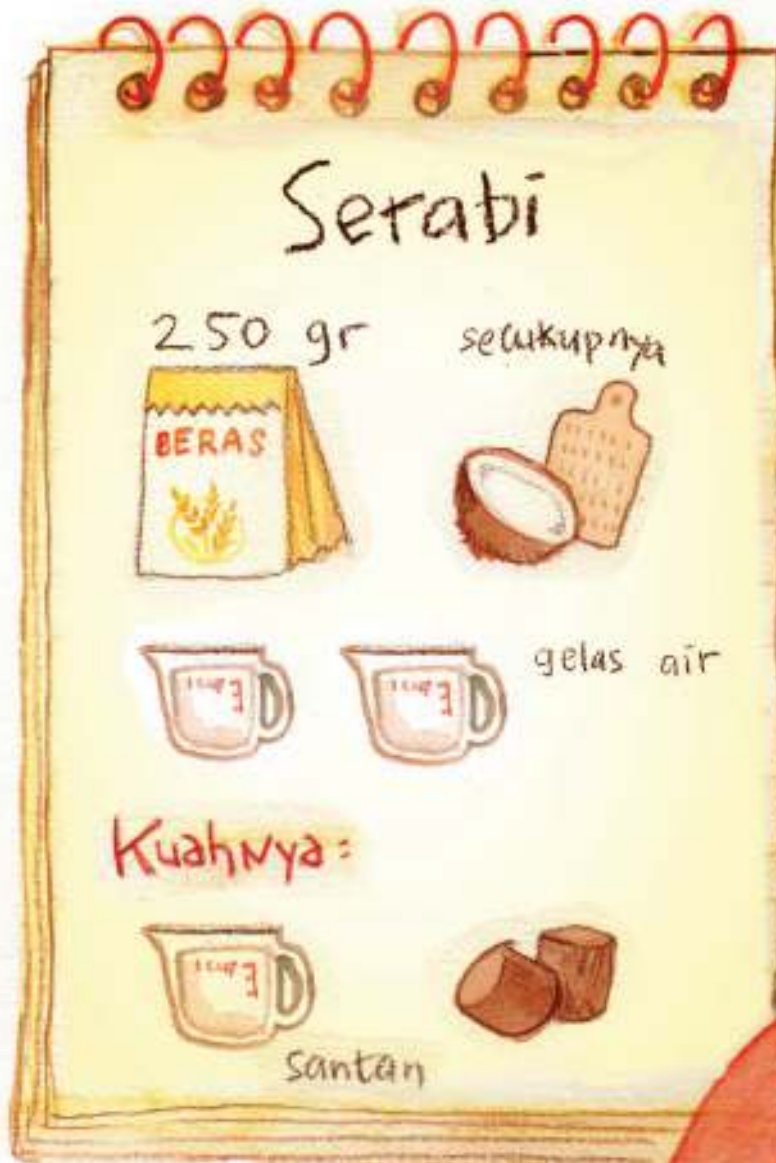 Serabi
250 gr
secukupnya
BERAS
gelas air
Kuahnya:
santan